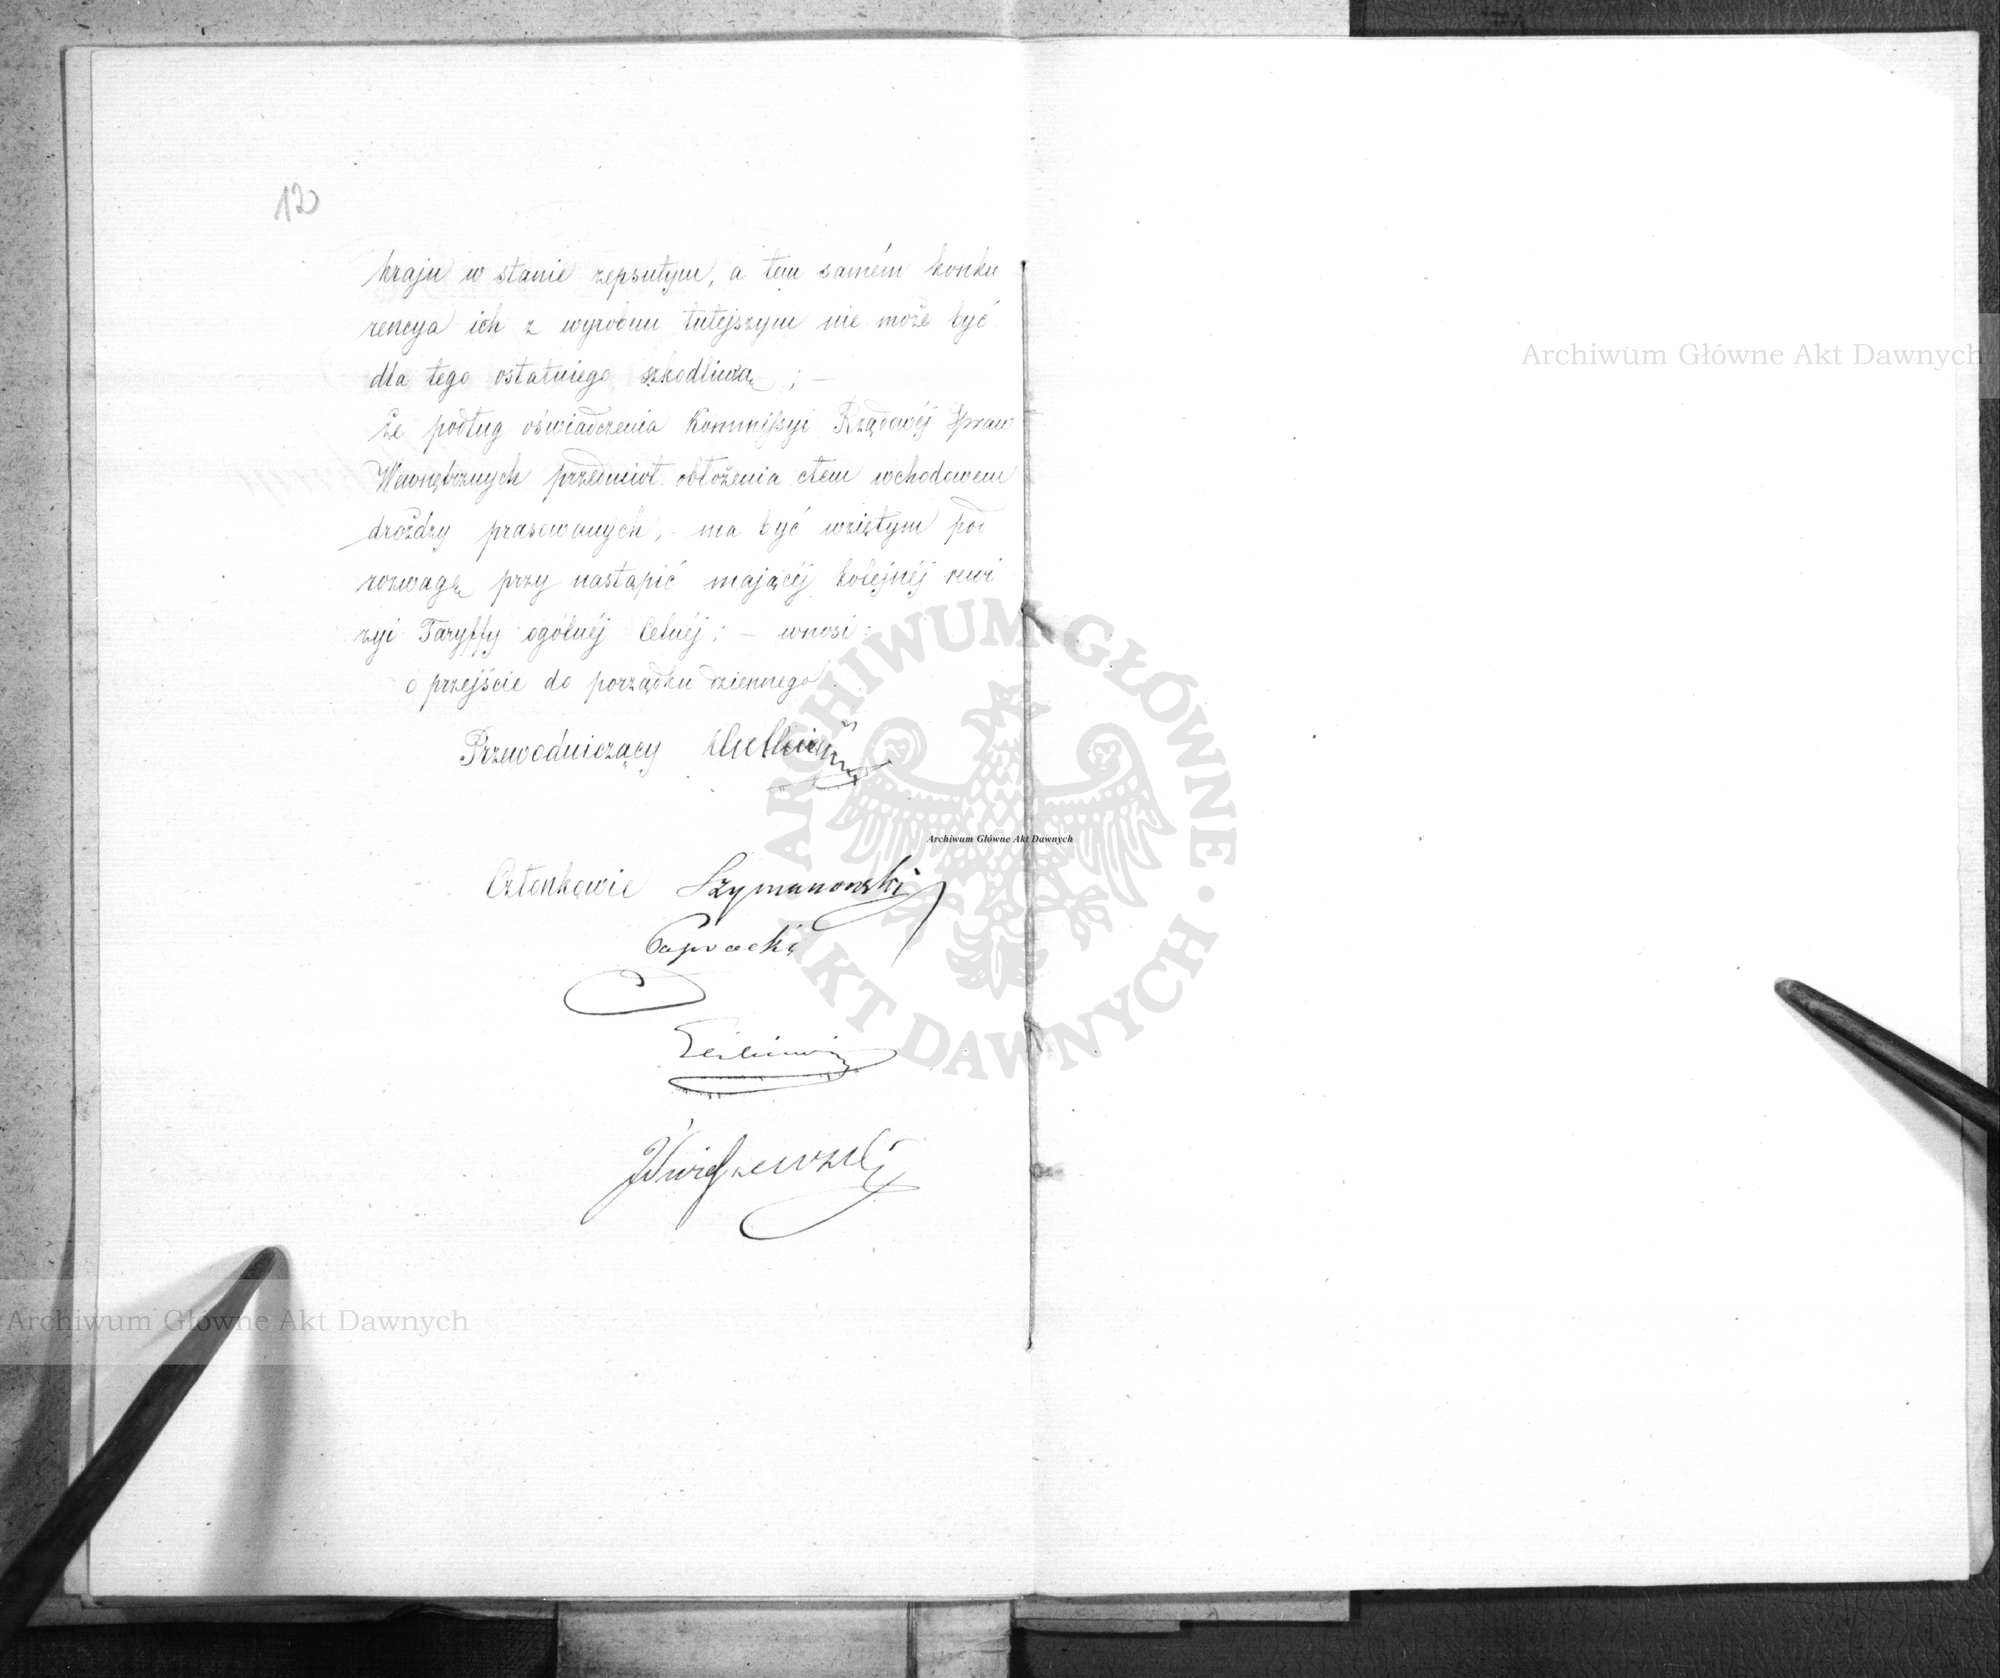 120
kraju w stanie zepsutym, a tem samém konku
rencya ich z wyrobem tutejszym nie może być
dla tego ostatniego szkodliwą; –
Że podług oświadczenia Kommissyi Rządowéj Spraw
Wewnętrznych przedmiot obłożenia cłem wchodowem
drożdży prasowanych, – ma być wziętym pod
rozwagę przy nastąpić mającéj kolejnéj rewi
zyi Taryffy ogólnéj Celnéj; – wnosi:
o przejście do porządku dziennego.
Przewodniczący
Członkowie Szymanowski
Paprocki
Archiwum Główne Akt Dawnych
Archiwum Główne Akt Dawnych
Archiwum Główne Akt Dawnych
ARCHIWUM GŁÓWNE AKT DAWNYCH